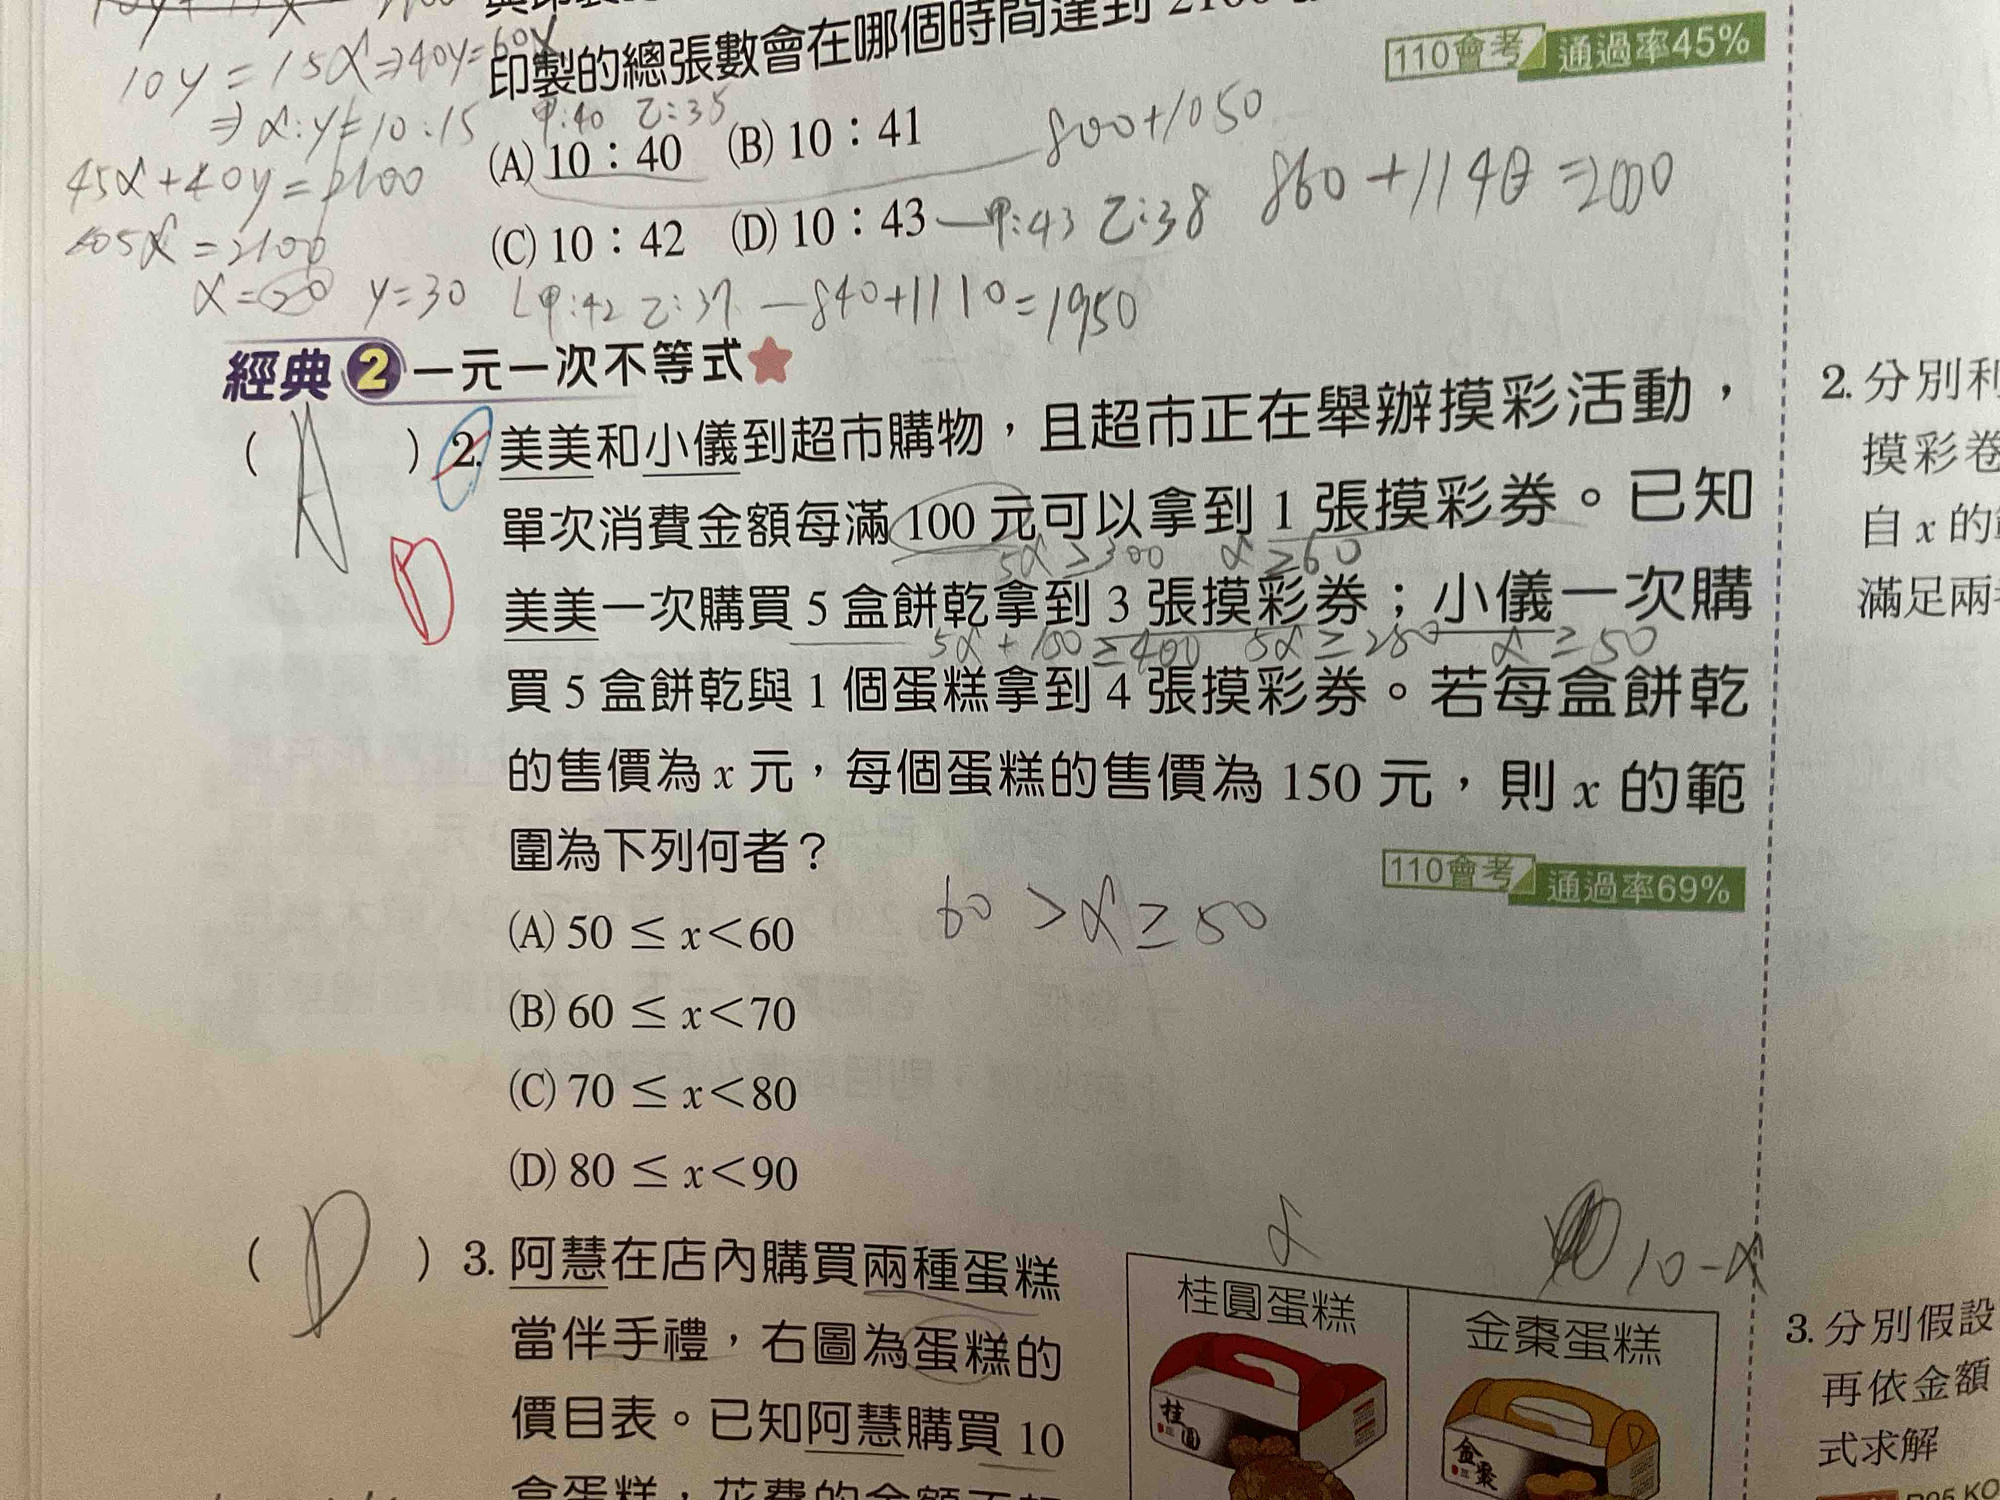 10y=15x⇒40y=60x
印製的總張數會在哪個時間達到 2100
110會考 通過率45%
⇒x:y=10:15
甲:40 乙:35
(A) 10:40 (B) 10:41
800+1050
45x+40y=2100
(C) 10:42 (D) 10:43
甲:43 乙:38 860+1140=2000
105x=2100
x=20 y=30
甲:42 乙:37 840+1110=1950
經典 2 一元一次不等式
( A ) 2. 美美和小儀到超市購物,且超市正在舉辦摸彩活動,
單次消費金額每滿 100 元可以拿到 1 張摸彩券。已知
5x≥300 x≥60
D
美美一次購買 5 盒餅乾拿到 3 張摸彩券;小儀一次購
5x+150≥400 5x≥250 x≥50
買 5 盒餅乾與 1 個蛋糕拿到 4 張摸彩券。若每盒餅乾
的售價為 x 元,每個蛋糕的售價為 150 元,則 x 的範
圍為下列何者?
110會考 通過率69%
60>x≥50
(A) 50 ≤ x<60
(B) 60 ≤ x<70
(C) 70 ≤ x<80
(D) 80 ≤ x<90
( D ) 3. 阿慧在店內購買兩種蛋糕
當伴手禮,右圖為蛋糕的
價目表。已知阿慧購買 10
盒蛋糕,花費的金額不
x
10-x
桂圓蛋糕
金棗蛋糕
桂圓
金棗
2. 分別利
摸彩卷
自 x 的
滿足兩
3. 分別假設
再依金額
式求解